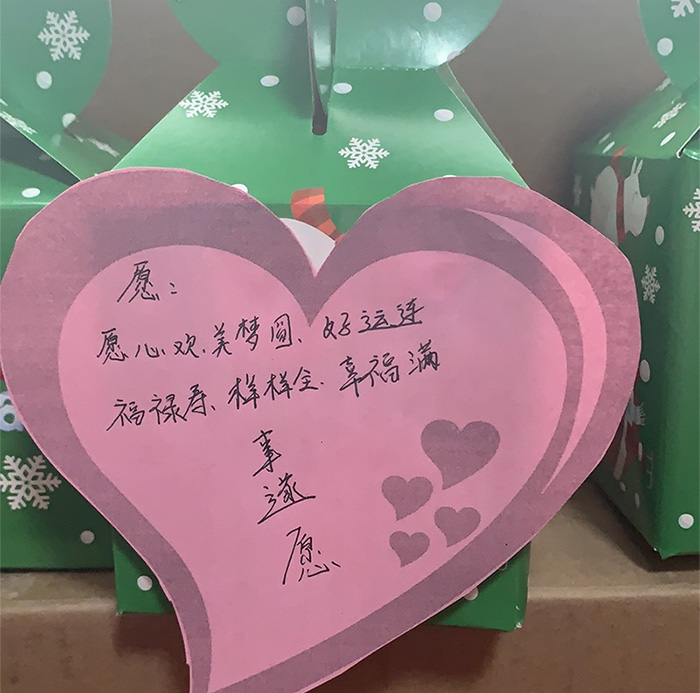 愿：
愿心欢、美梦圆、好运连
福禄寿、样样全、幸福满
事
遂
愿